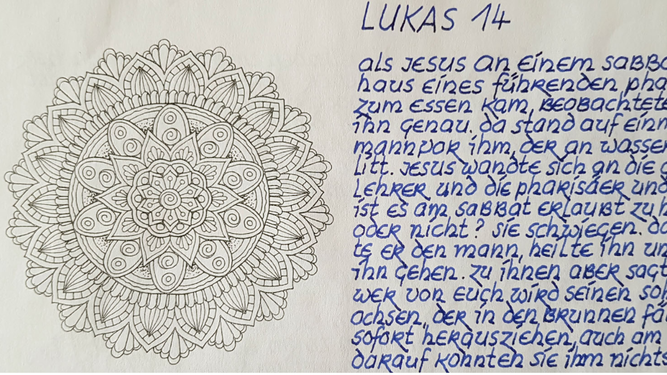 LUKAS 14
als JESUS an einem SABBA
haus eines führenden pha
zum ESSEN kam, BEOBACHTETE
ihn genau. da stand auf einm
mann vor ihm, der an wasser
Litt. JESUS wandte sich an die g
Lehrer und die pharisäer und
ist es am SABBAT erlaubt zu h
oder nicht? sie schwiegen. da
te er den mann, heilte ihn un
ihn gehen. zu ihnen aber sagt
wer von euch wird seinen soh
ochsen, der in den BRUNNEN fä
sofort herausziehen, auch am
darauf konnten sie ihm nichts